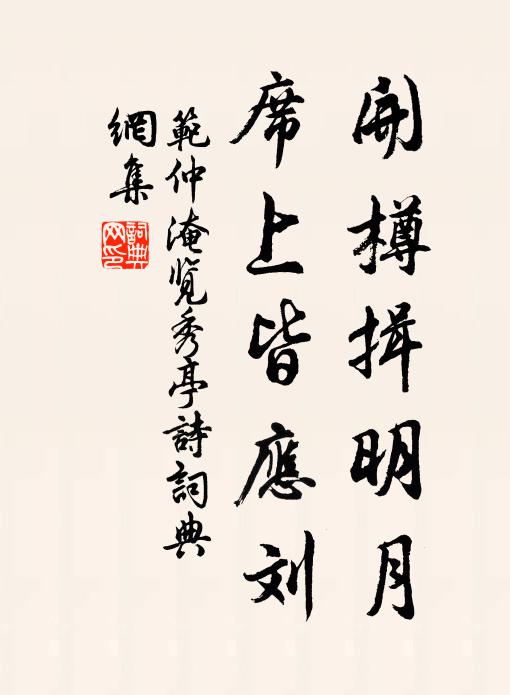 開樽揖明月
席上皆應刘
範仲淹览秀亭詩詞典
網集
詞典
网印